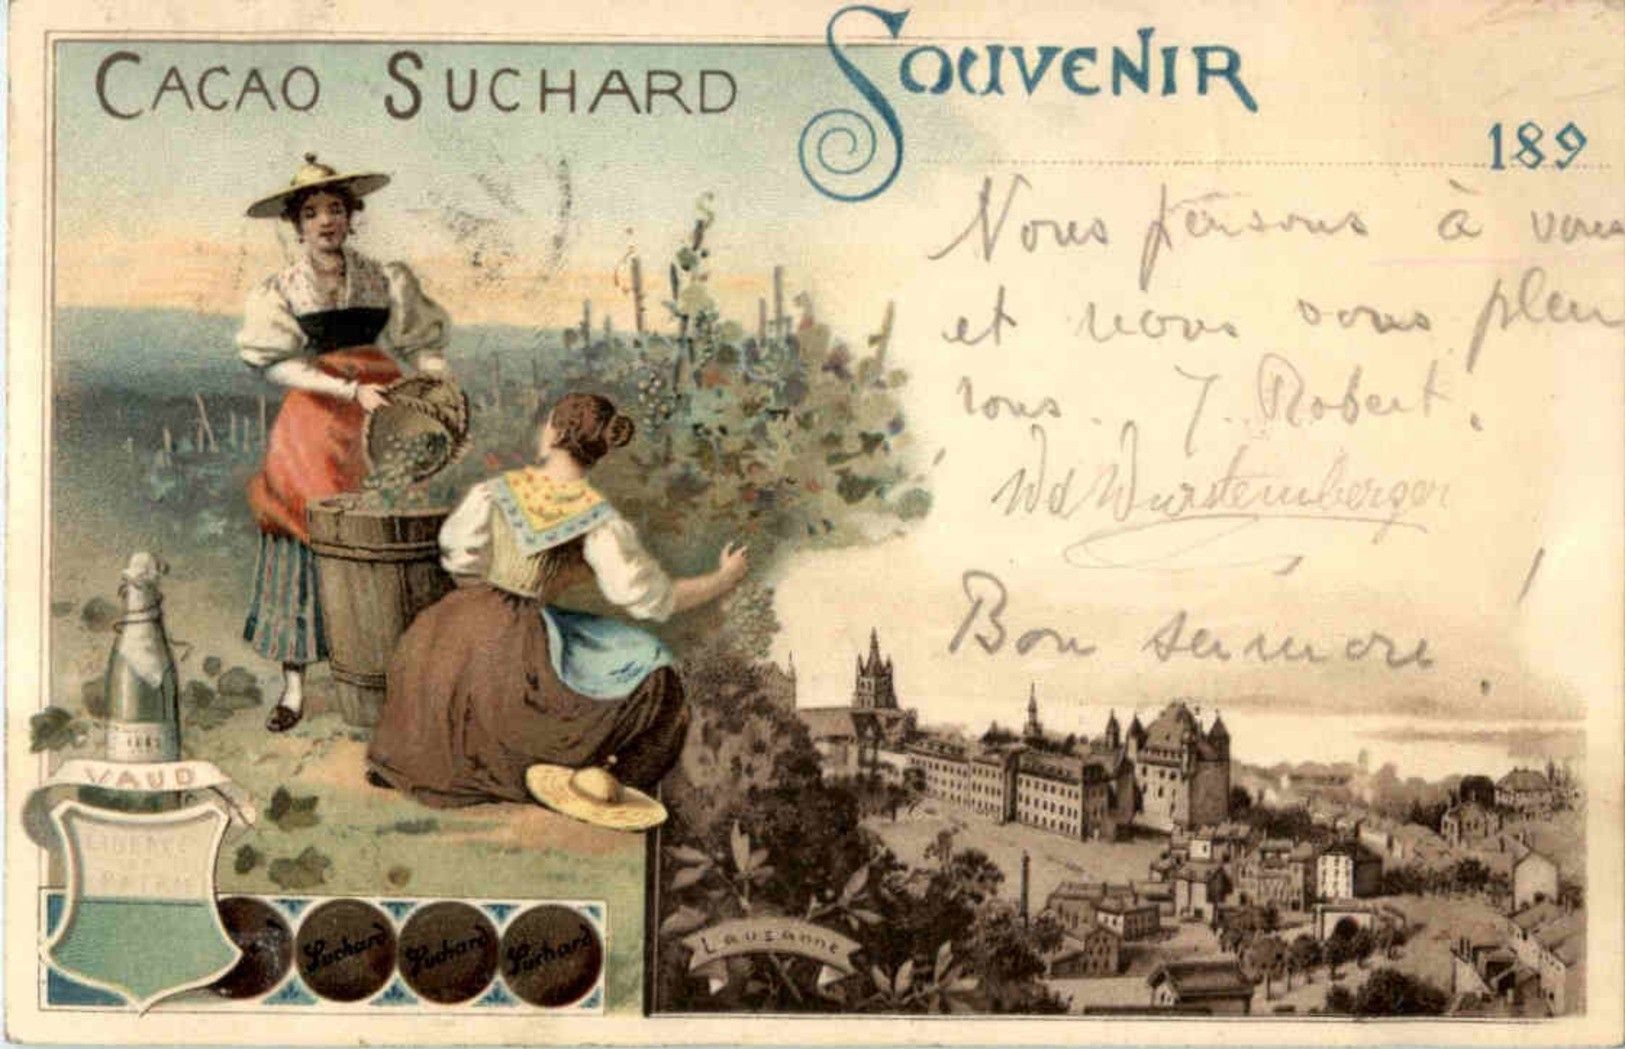 CACAO SUCHARD
SOUVENIR
189
Nous pensons à vous
et nous vous pleu
rons. J. Robert.
Wd Wurstemberger
Bon
VAUD
LIBERTÉ
PATRIE
Suchard Suchard Suchard
Lausanne